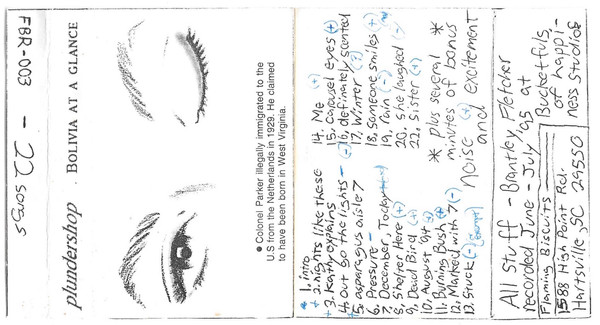 FBR-003 - 22 songs
plundershop . BOLIVIA AT A GLANCE
● Colonel Parker illegally immigrated to the
U.S from the Netherlands in 1929. He claimed
to have been born in West Virginia.
1. intro
2. nights like these
3. Kathy explains
4. Out go the lights
5. asparagus aisle 7
6. Pressure
7. December, Today
8. Shelter Here
9. Dead Bird
10. August '94
11. Burning Bush
12. Marked with 7
13. Stuck
14. Me
15. Carousel eyes
16. definately scented
17. Winter
18. Someone smiles
19. Pain
20. She laughed
22. Sister
* plus several *
minutes of bonus
noise and excitement
All stuff - Brantley Fletcher
recorded June - July '95 at
Bucketfuls
of happi-
ness studios
Flaming Biscuits
1588 High Point Rd.
Hartsville, SC 29550